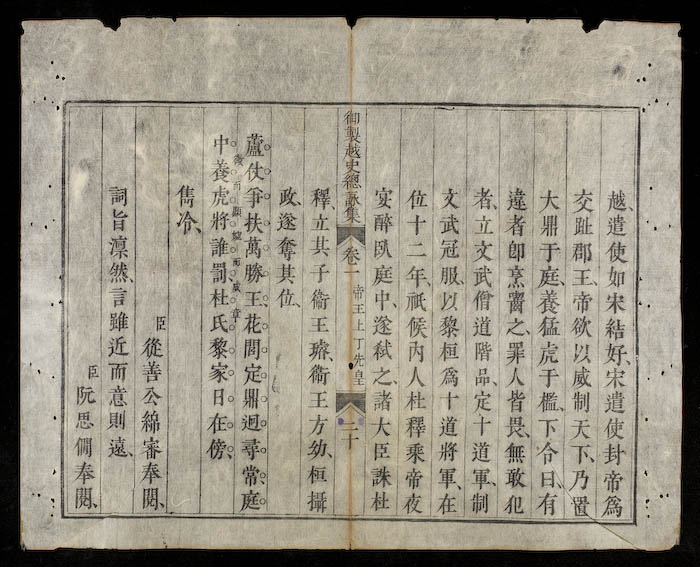 越、遣使如宋結好、宋遣使封帝爲
交趾郡王、帝欲以威制天下、乃置
大鼎于庭、養猛虎于檻、下令曰、有
違者卽烹臠之、罪人皆畏、無敢犯
者、立文武僧道階品、定十道軍、制
文武冠服、以黎桓爲十道將軍、在
位十二年、祇候內人杜釋乘帝夜
宴醉臥庭中、遂弒之、諸大臣誅杜
御製越史總詠集 卷一 帝王上 丁先皇 二十
釋、立其子衞王璿、衞王方幼、桓攝
政、遂奪其位、
蘆仗爭扶萬勝王、花閭定鼎迥尋常、庭
微而顯婉而成章
中養虎將誰罰、杜氏黎家日在傍、
雋冷、
臣從善公綿審奉閱、
詞旨凛然、言雖近而意則遠、
臣阮思僩奉閱、